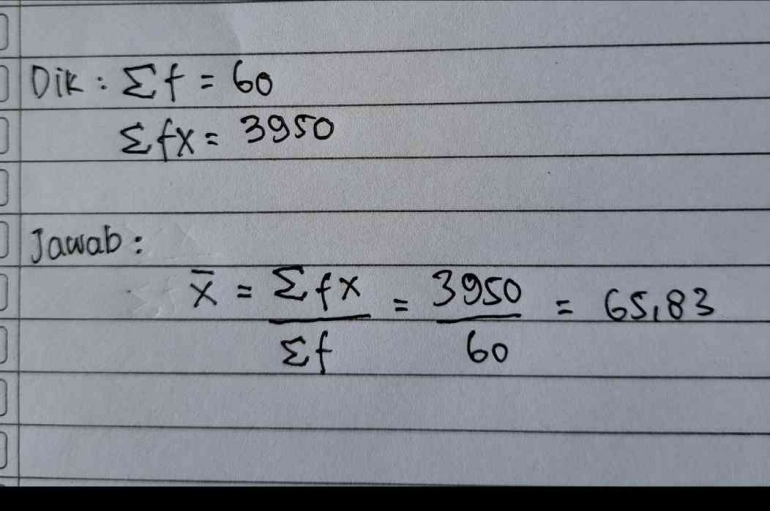 Dik : Σf = 60
Σfx = 3950
Jawab :
x̄ = Σfx / Σf = 3950 / 60 = 65,83